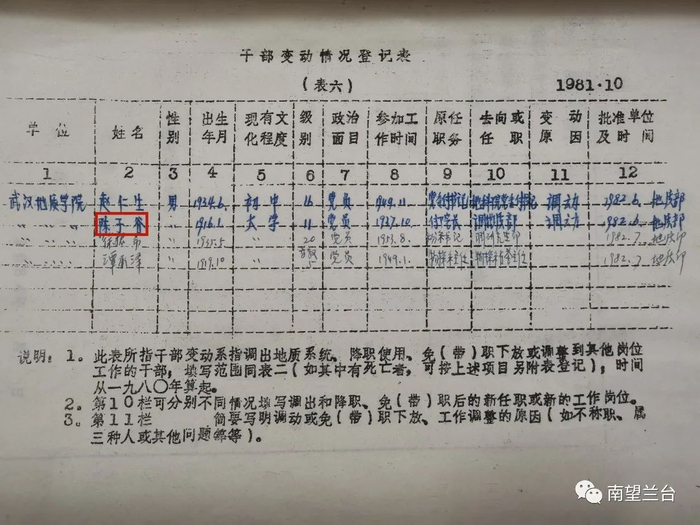 干部变动情况登记表
(表六) 1981.10
单位 姓名 性别 出生年月 现有文化程度 级别 政治面目 参加工作时间 原任职务 去向或任职 变动原因 批准单位及时间
1 2 3 4 5 6 7 8 9 10 11 12
武汉地质学院 赵仁生 男 1934.6. 初中 16 党员 1949.11. 调动 1982.6. 地质部
〃 〃 〃 陈子谷 〃 1916.1. 大学 11 党员 1937.10 调地质部 调动 1982.6. 地质部
〃 〃 〃 〃 20 党员 1953.8. 1982.7. 地质部
〃 〃 〃 〃 1919.10 党员 1949.1. 1982.7 地质部
说明: 1。此表所指干部变动系指调出地质系统、降职使用、免(带)职下放或调整到其他岗位
工作的干部,填写范围同表二(如其中有死亡者,可按上述项目另附表登记),时间
从一九八〇年算起。
2。第10栏可分别不同情况填写调出和降职、免(带)职后的新任职或新的工作岗位。
3。第11栏 简要写明调动或免(带)职下放、工作调整的原因(如不称职、属
三种人或其他问题等等)。
南望兰台